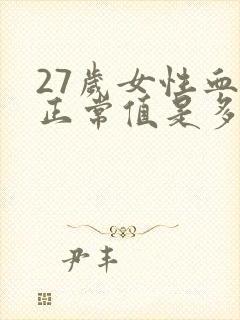 27歲女性血
正常值是多
尹丰